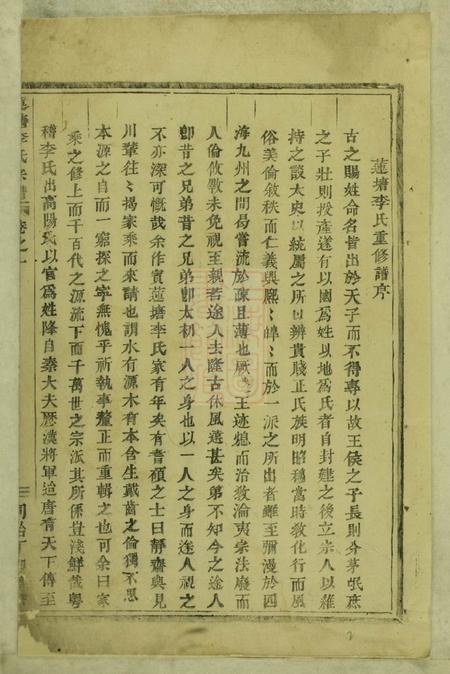 蓮塘李氏重修譜序
古之賜姓命名皆出於天子而不得專以故王侯之子長則分茅氓庶
之子壯則授產遂有以國為姓以地為氏者自封建之後立宗人以維
持之設太史以統屬之所以辨貴賤正氏族明昭穆當時敎化行而風
俗美倫敘秩而仁義興熈〻皡〻而於一派之所出者雖至彌漫於四
海九州之間曷嘗流於疎且薄也厥後王迹熄而治敎淪夷宗法廢而
人倫攸斁未免視王親若途人去隆古休風遠甚矣第不知今之途人
卽昔之兄弟昔之兄弟卽太初一人之身也以一人之身而途人視之
不亦深可慨哉余作賓蓮塘李氏家有年矣有耆碩之士曰靜齋與見
川輩往〻揭家乘而來請也謂水有源木有本含生戴齒之倫獨不思
本源之自而一窮探之寧無愧乎祈執事釐正而重輯之也可余曰家
乘之修上而千百代之源流下而千萬世之宗派其所係豈淺鮮哉粵
稽李氏出高陽氏以官為姓降自秦大夫歷漢將軍迨唐有天下傳至
蓮塘李氏宗譜 卷之一